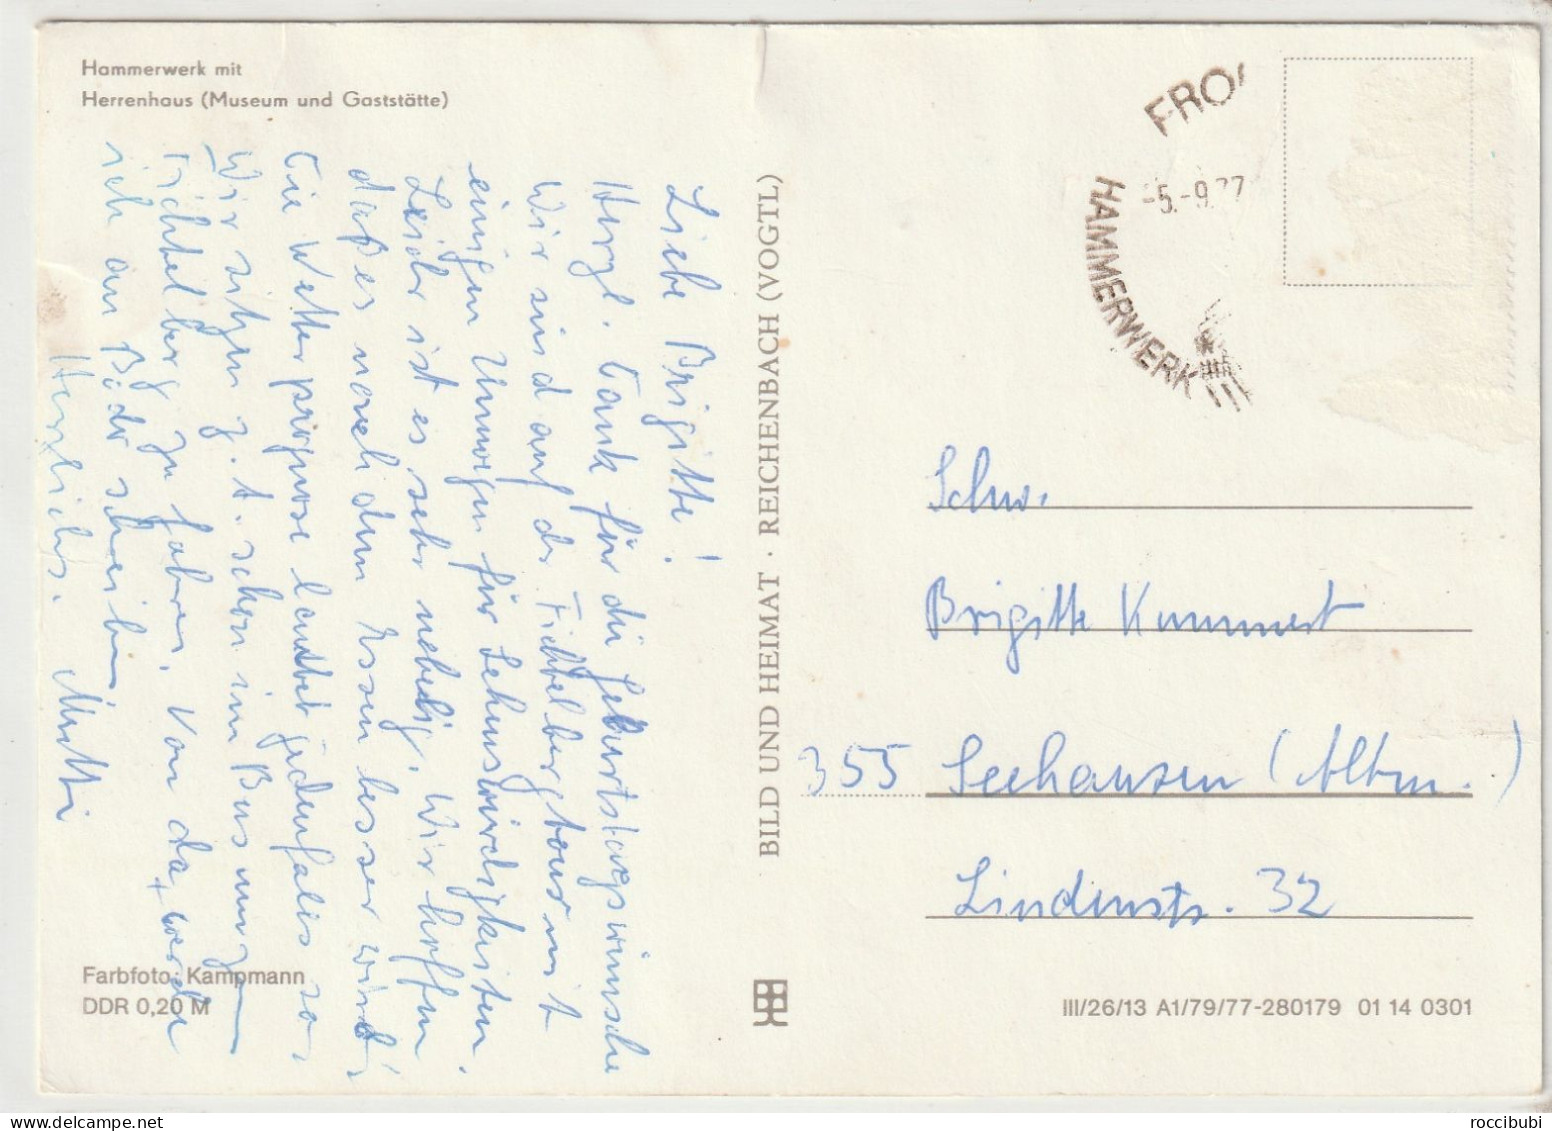 Hammerwerk mit
Herrenhaus (Museum und Gaststätte)
Liebe Brigitte!
Herzl. Dank für die Geburtstagswünsche
Wir sind auf der Fichtelbergtour mit
einigen Umwegen für Sehenswürdigkeiten.
Leider ist es sehr nebelig. Wir hoffen
daß es nach dem Essen besser wird.
Die Wetterprognose lautet jedenfalls so
Wir sitzen z.t. schon im Bus um zum
Fichtelberg zu fahren. Von da werde
ich an Bodo schreiben
Herzlichst. Mutti
Farbfoto: Kampmann
DDR 0,20 M
BILD UND HEIMAT · REICHENBACH (VOGTL)
FRO
-5.-9.77
HAMMERWERK
Schw.
Brigitte Kummert
355 Seehausen (Altm.)
Lindenstr. 32
III/26/13 A1/79/77-280179 01 14 0301
roccibubi